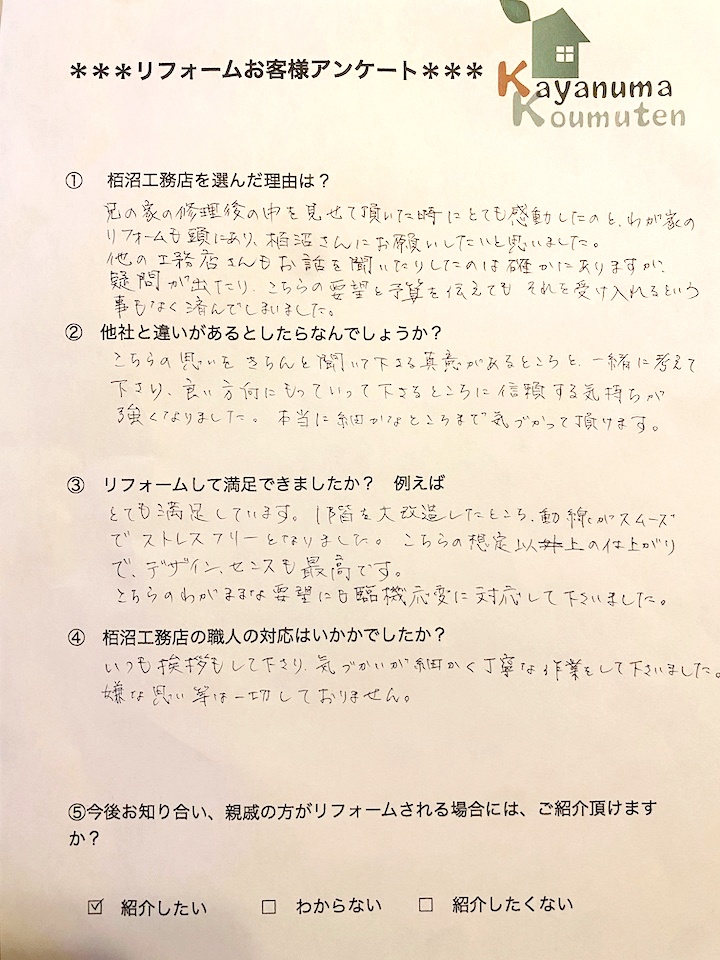 ***リフォームお客様アンケート***
Kayanuma
Koumuten
① 栢沼工務店を選んだ理由は？
兄の家の修理後の中を見せて頂いた時にとても感動したのと、わが家の
リフォームも頭にあり、栢沼さんにお願いしたいと思いました。
他の工務店さんもお話を聞いたりしたのは確かにありますが、
疑問が出たり、こちらの要望と予算を伝えても それを受け入れるという
事もなく済んでしまいました。
② 他社と違いがあるとしたらなんでしょうか？
こちらの思いを きちんと聞いて下さる真意があるところと、一緒に考えて
下さり、良い方向にもっていって下さるところに信頼する気持ちが
強くなりました。本当に細かなところまで気づかって頂けます。
③ リフォームして満足できましたか？ 例えば
とても満足しています。1階を大改造したところ、動線がスムーズ
でストレスフリーとなりました。こちらの想定以上の仕上がり
で、デザイン、センスも最高です。
こちらのわがままな要望にも臨機応変に対応して下さいました。
④ 栢沼工務店の職人の対応はいかかでしたか？
いつも挨拶もして下さり、気づかいが細かく丁寧な作業をして下さいました。
嫌な思い等は一切しておりません。
⑤今後お知り合い、親戚の方がリフォームされる場合には、ご紹介頂けます
か？
☑ 紹介したい □ わからない □ 紹介したくない